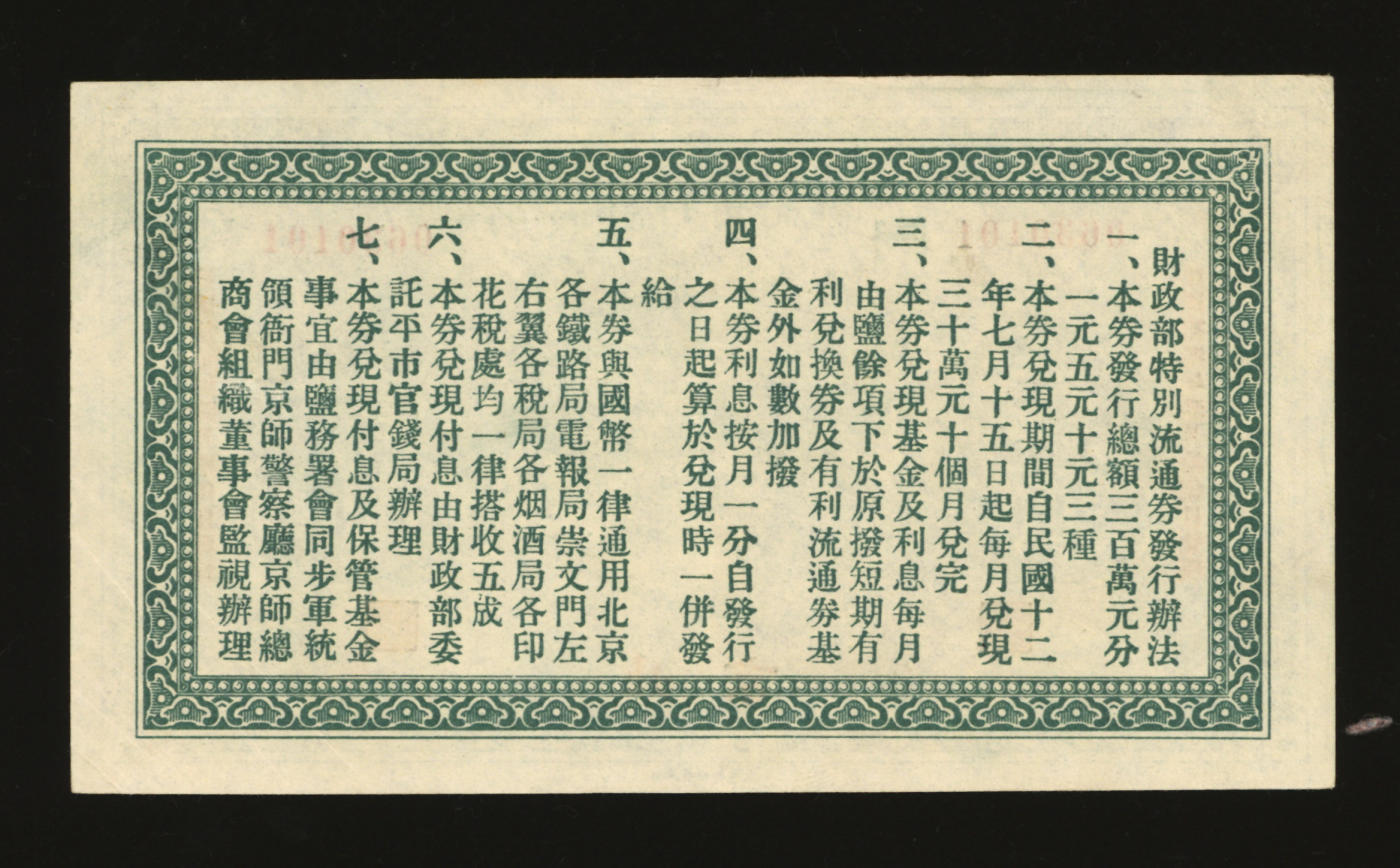 財政部特別流通券發行辦法
一、本券發行總額三百萬元分
一元五元十元三種
二、本券兌現期間自民國十二
年七月十五日起每月兌現
三十萬元十個月兌完
三、本券兌現基金及利息每月
由鹽餘項下於原撥短期有
利兌換券及有利流通券基
金外如數加撥
四、本券利息按月一分自發行
之日起算於兌現時一併發
給
五、本券與國幣一律通用北京
各鐵路局電報局崇文門左
右翼各稅局各烟酒局各印
花稅處均一律搭收五成
六、本券兌現付息由財政部委
託平市官錢局辦理
七、本券兌現付息及保管基金
事宜由鹽務署會同步軍統
領衙門京師警察廳京師總
商會組織董事會監視辦理